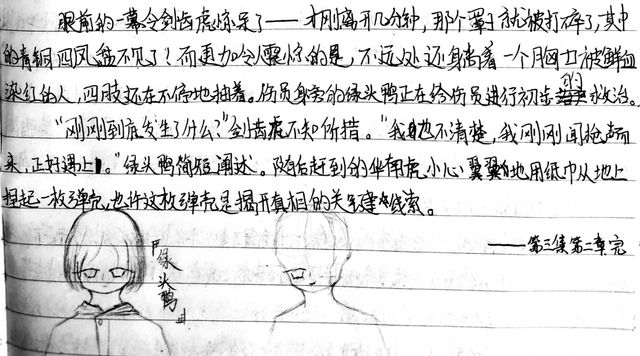 眼前的一幕令剑齿虎惊呆了——才刚离开几分钟，那个罩子就被打碎了，其中
的青铜四凤盉不见了！而更加令人震惊的是，不远处还躺着一个胸口被鲜血
染红的人，四肢还在不停地抽着。伤员身旁的绿头鸭正在给伤员进行初步的救治。
“刚刚到底发生了什么？”剑齿虎不知所措。“我也不清楚，我刚刚闻枪声而
来，正好遇上。”绿头鸭简短阐述。随后赶到的华南虎小心翼翼地用纸巾从地上
捏起一枚弹壳，也许这枚弹壳是揭开真相的关键线索。
——第三集第二章完
『绿头鸭』